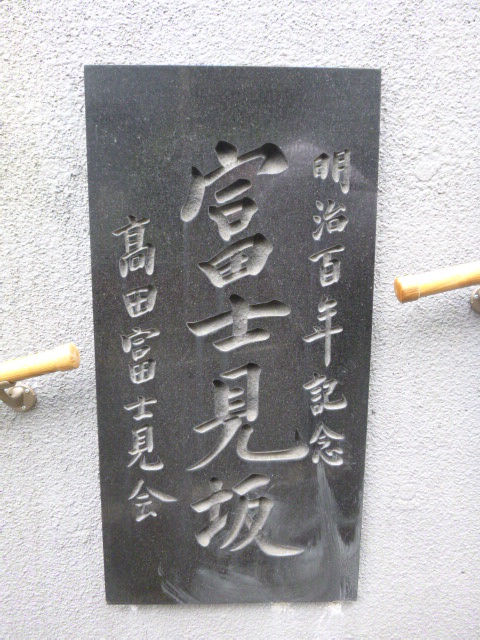 明治百年記念
富士見坂
髙田富士見会